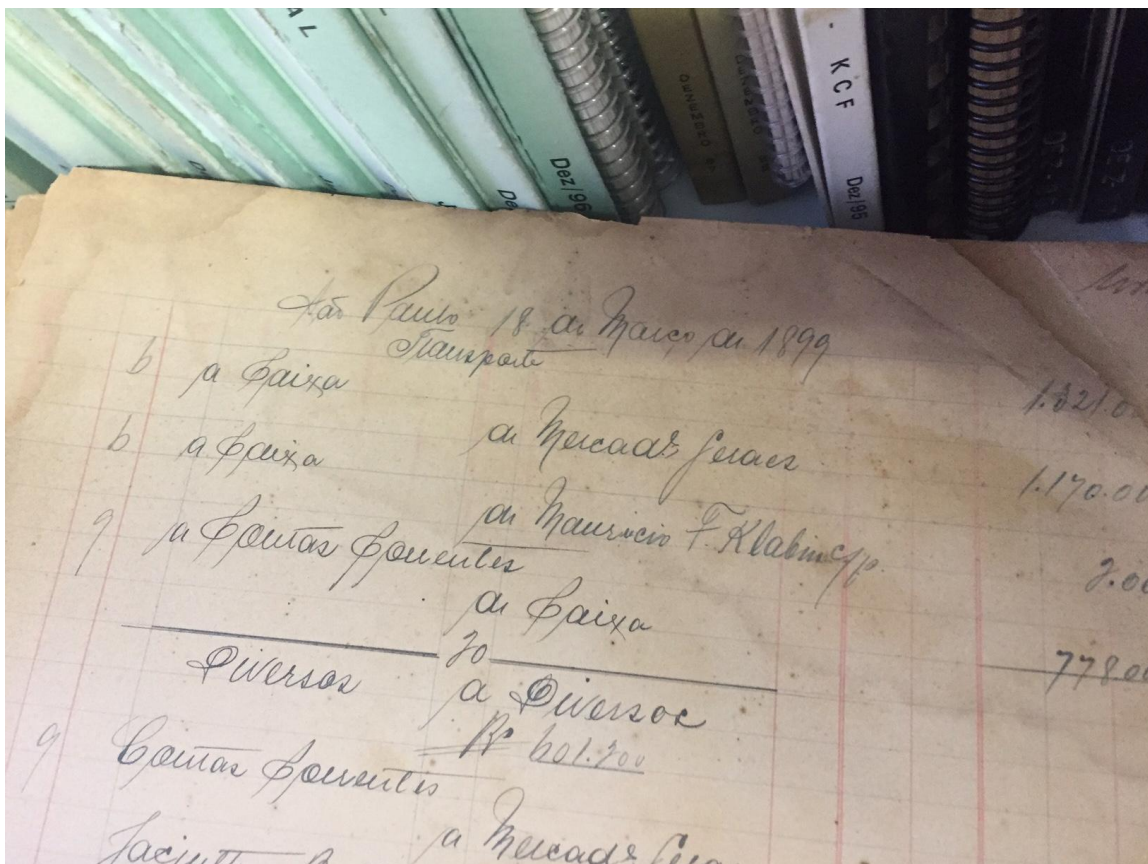 A L
Dez/96
KCF Dez/95
São Paulo 18 de Março de 1899
Transporte
6 a Caixa 1.321.00
de Mercads Geraes
6 a Caixa 1.170.00
de Mauricio F. Klabin c/p.
9 a Contas Correntes
de Caixa
778.00
20
Diversos a Diversos
Rs 601.200
9 Contas Correntes
a Mercads